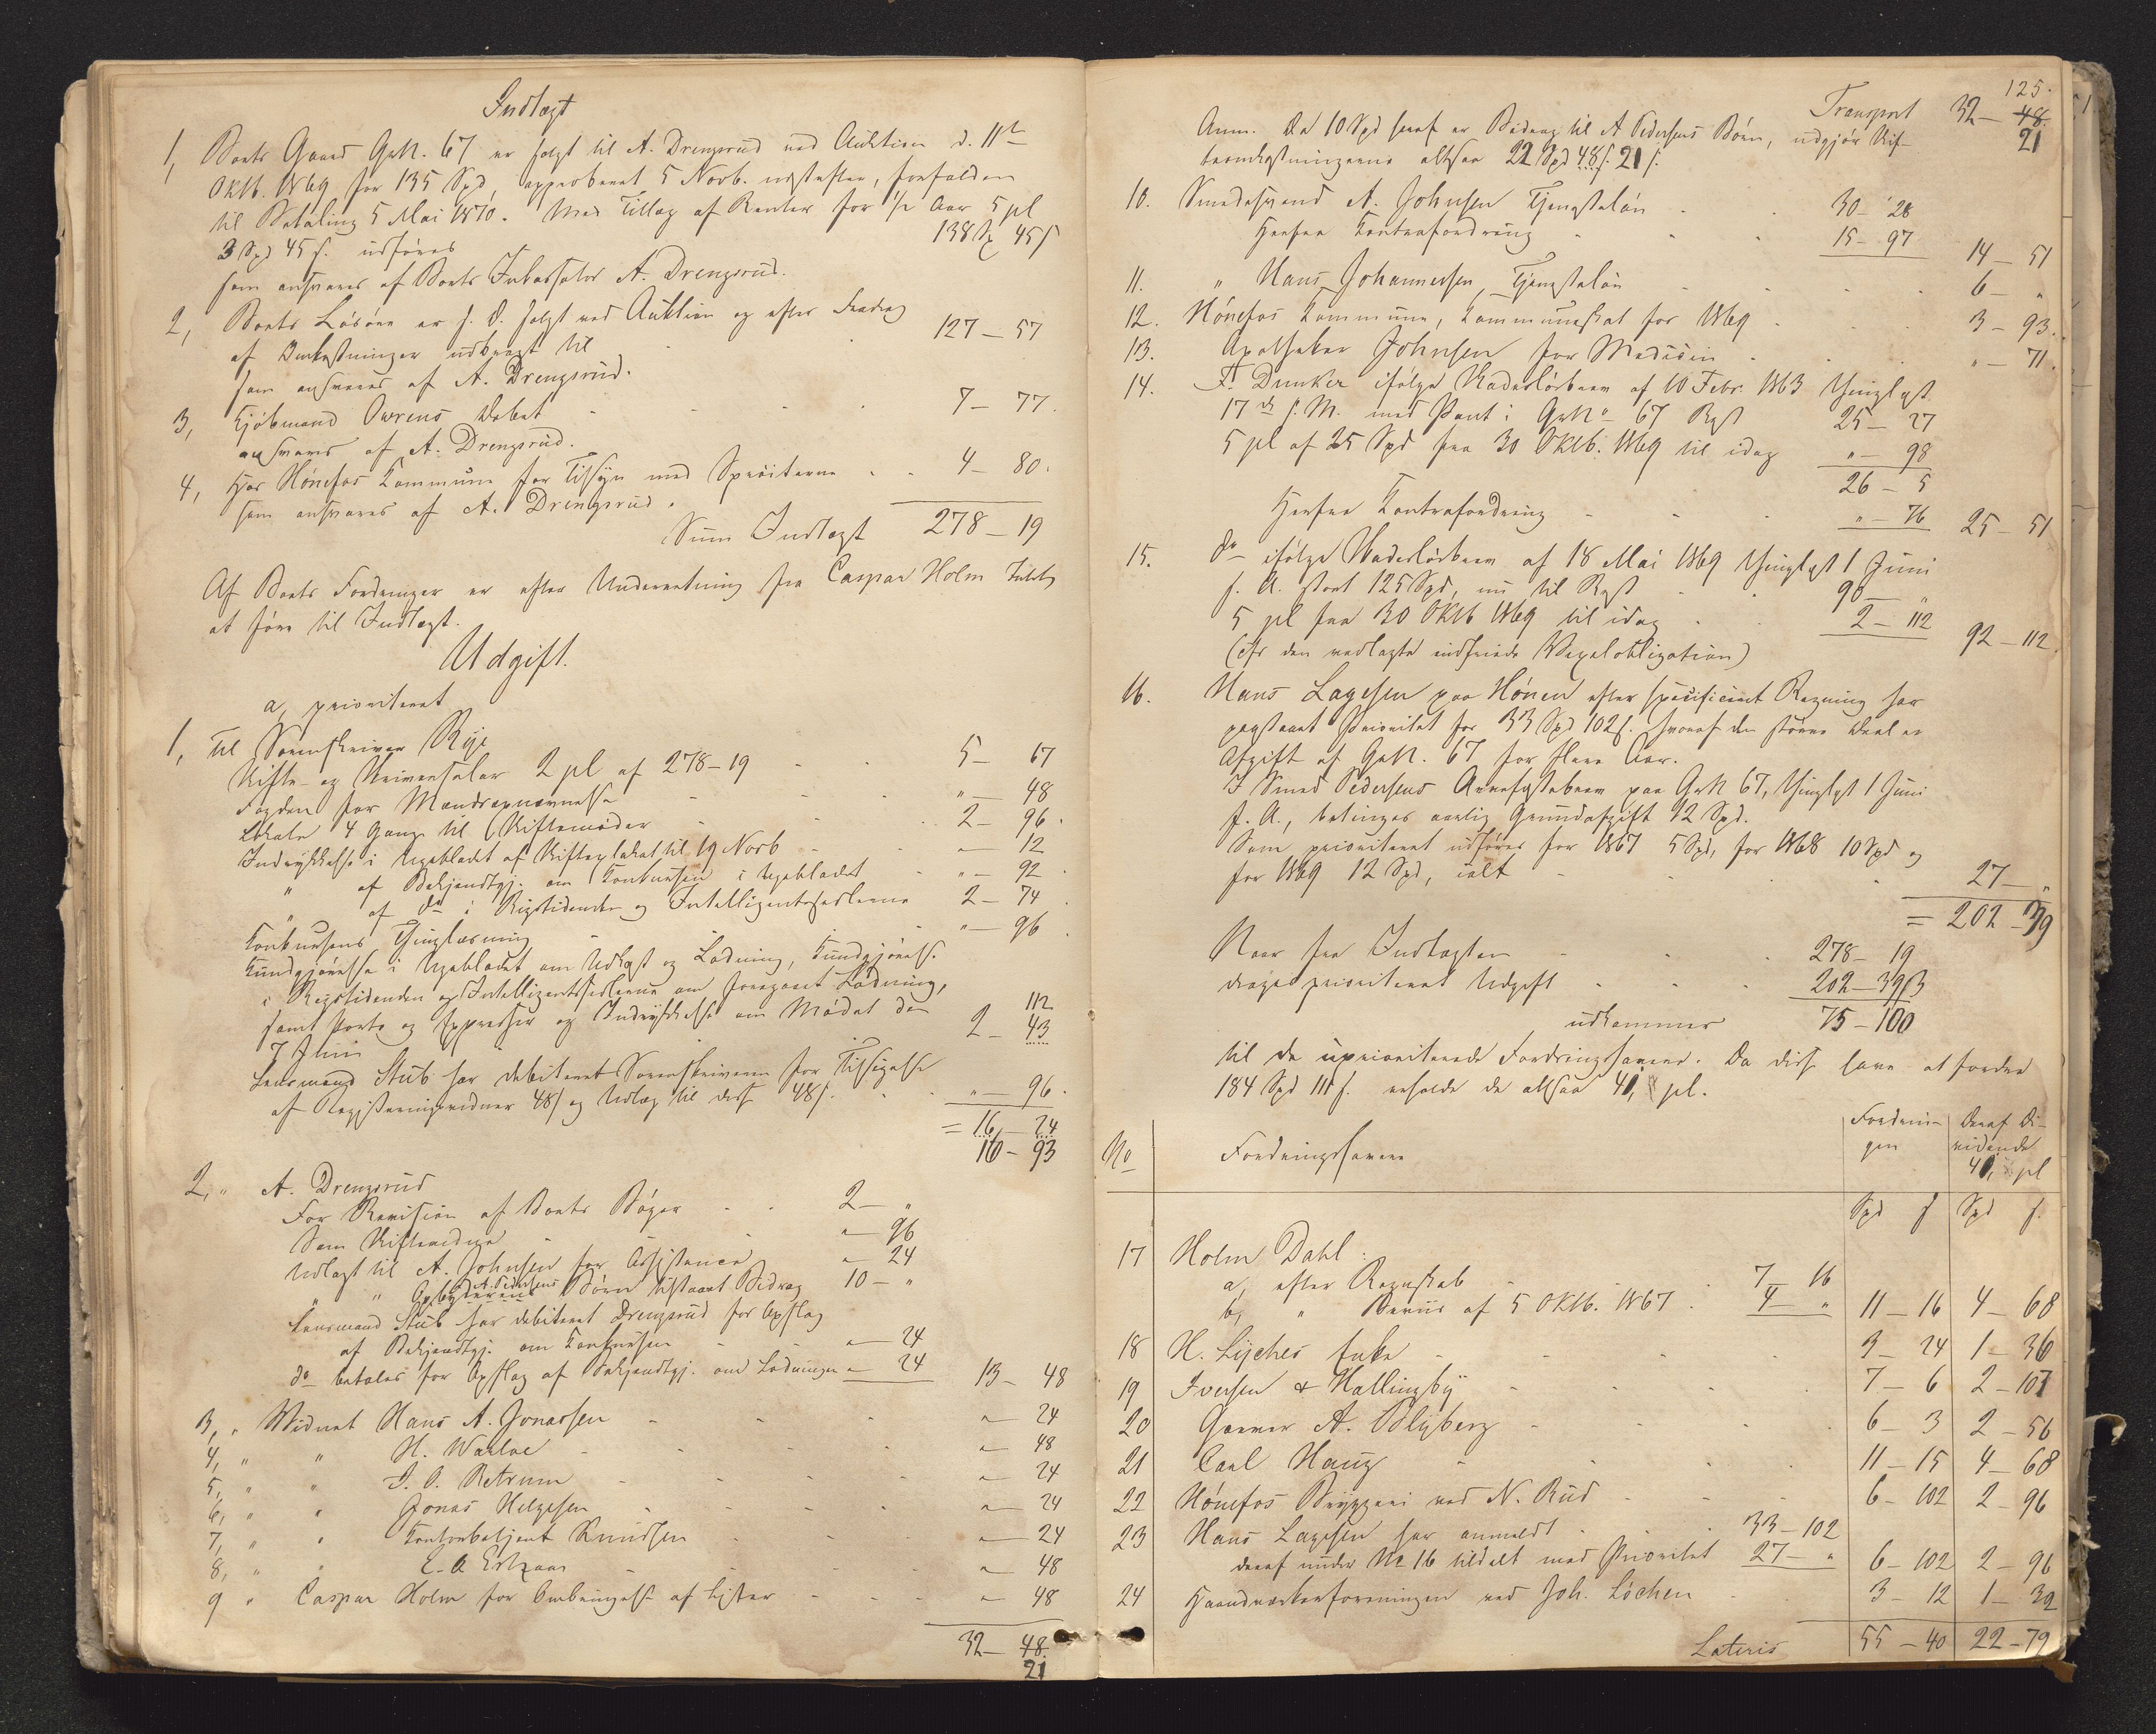 Indtægt
1, Boets Gaard GrN. 67 er solgt til A. Drengsrud ved Auktion d. 11te
Oktb. 1869 for 135 Spd, approberet 5 Novb. næstefter, forfalden
til Betaling 5 Mai 1870. Med Tillæg af Renter for ½ Aar 5 pCt
3 Spd 45 s. udføres 138 Sp 45 s
som ansvares af Boets Inkassator A. Drengsrud.
2, Boets Løsøre er s. D. solgt ved Auktion og efter Fradrag
af Omkostninger udbragt til 127 – 57
som ansvares af A. Drengsrud.
3, Kjøbmand Owrens Debet 7 – 77.
ansvares af A. Drengsrud.
4, Hos Hönefos Kommune for Tilsyn med Sprøiterne 4 – 80.
som ansvares af A. Drengsrud.
Sum Indtægt 278 – 19
Af Boets Fordringer er efter Underretning fra Caspar Holm Intet
at føre til Indtægt.
Udgift.
a, prioriteret
1, Til Sorenskriver Rye
Skifte- og Skriversalær 2 pCt af 278–19 5 – 67
Fogden for Mændsopnævnelse " – 48
Lokale 4 Gange til Skiftemøder 2 – 96.
Indrykkelse i Ugebladet af Skifteplakat til 19 Novb " – 12
" af Bekjendtgj. om Konkursen i Ugebladet " – 92
" af do i Rigstidende og Intelligentssedlerne 2 – 74
Konkursens Thinglæsning " – 96.
Kundgjørelse i Ugebladet om Udlæg og Lodning, Kundgjørelse
i Rigstidenden og Intelligentssedlerne om foregaaet Lodning,
samt Porto og Expresser og Indrykkelse om Mødet den 112
7 Juni 2 – 43
Lensmand Stub har debiteret Sorenskriveren for Tilsigelse
af Registreringsvidner 48 s og Udlæg til disse 48 s. " – 96.
= 16 – 24
16 – 93
2, " A. Drengsrud
For Revision af Boets Bøger 2 – "
Som Skiftevidne " – 96
Udlagt til A. Johnsen for Assistance " – 24
A. Pedersens
" " Opbyderens Børn tilstaaet Bidrag 10 – "
Lensmand Stub har debiteret Drengsrud for Opslag
af Bekjendtgj. om Konkursen " – 24
do betales for Opslag af Bekjendtgj. om Lodningen " – 24 13 – 48
3, " Vidnet Hans A. Jonassen " – 24
4, " " H. Warloe " – 48
5, " " I. O. Retrum " – 24
6, " " Jonas Helgesen " – 24
7, " " Kontorbetjent Knudsen " – 24
8, " " " – 48
9 " Caspar Holm for Ombringelse af Lister " – 48
32 – 48.
21
125.
Transport 32 – 48.
21
Anm. Da 10 Spd heraf er Bidrag til A Pedersens Börn, udgjør Skif-
teomkostningerne altsaa 22 Spd 48 s. 21 s.
10. Smedesvend A. Johnsen Tjenesteløn 30 – 28
Herfra Kontrafordring 15 – 97 14 – 51
11. " Hans Johannessen Tjenesteløn 6 – "
12. Hönefos Kommune, Kommuneskat for 1869 3 – 93.
13. Apotheker Johnsen for Medicin " – 71.
14. F. Dunker ifølge Skadesløsbrev af 10 Febr. 1863 thinglyst
17de s. M. med Pant i GrNo 67 Rest 25 – 27
5 pCt af 25 Spd fra 30 Oktb. 1869 til idag " – 98
26 – 5
Herfra Kontrafordring " – 76 25 – 51
15. do ifølge Skadesløsbrev af 18 Mai 1869 thinglyst 1 Juni
s. A. stort 125 Spd, nu til Rest 90 "
5 pCt fra 30 Oktb 1869 til idag 2 – 112 92 – 112.
(Cfr den vedlagte indfriede Vexelobligation)
16. Hans Lagesen paa Hönen efter specificeret Regning har
paastaaet Prioritet for 33 Spd 102 s. hvoraf den større Deel er
Afgift af GrN. 67 for flere Aar.
I Smed Pedersens Arvefæstebrev paa GrN 67, thinglyst 1 Juni
s. A., betinges aarlig Grundafgift 12 Spd.
Som prioriteret udføres for 1867 5 Spd, for 1868 10 Spd og
for 1869 12 Spd, ialt 27 – "
= 202 – 39
Naar fra Indtægten 278 – 19
drages prioriteret Udgift 202 – 39
udkommer 75 – 100
til de uprioriterede Fordringshavere. Da disse have at fordre
184 Spd 111 s. erholde de altsaa 41, pCt.
No Fordringshavere Fordrin-gen Deraf Di-vidende 41, pCt
Spd s Spd s.
17 Holm Dahl:
a, efter Regnskab 7 – 16
b, " Beviis af 5 Oktb. 1867 4 – " 11 – 16 4 – 68
18 H. Lyches Enke 3 – 24 1 – 36
19 Iversen & Hallingby 7 – 6 2 – 107
20 Garver A. Blyberg 6 – 3 2 – 56
21 Carl Haug 11 – 15 4 – 68
22 Hönefos Bryggeri ved N. Rud 6 – 102 2 – 96
23 Hans Lagesen har anmeldt 33 – 102
deraf under No 16 tildelt med Prioritet 27 – " 6 – 102 2 – 96
24 Haandværkerforeningen ved Joh. Löchen 3 – 12 1 – 32
Lateris 55 – 40 22 – 79